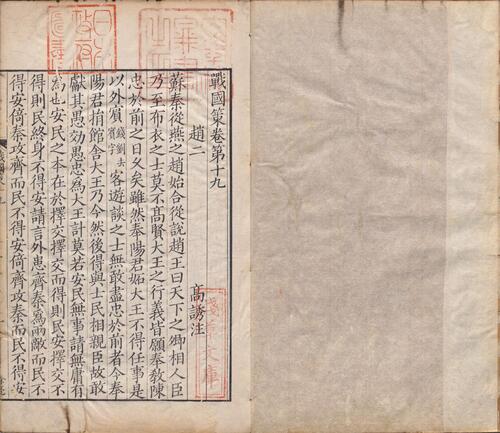 戰國策卷第十九
趙二
高誘注
蘇秦從燕之趙始合從說趙王曰天下之卿相人臣
乃至布衣之士莫不髙賢大王之行義皆願奉教陳
忠於前之日乆矣雖然奉陽君妬大王不得任事是
以外賔錢劉去賔字客遊談之士無敢盡忠於前者今奉
陽君捐館舍大王乃今然後得與士民相親臣故敢
獻其愚効愚忠爲大王計莫若安民無事請無庸有
爲也安民之本在於擇交擇交而得則民安擇交不
得則民終身不得安請言外患齊秦爲兩敵而民不
得安倚秦攻齊而民不得安倚齊攻秦而民不得安
文庫